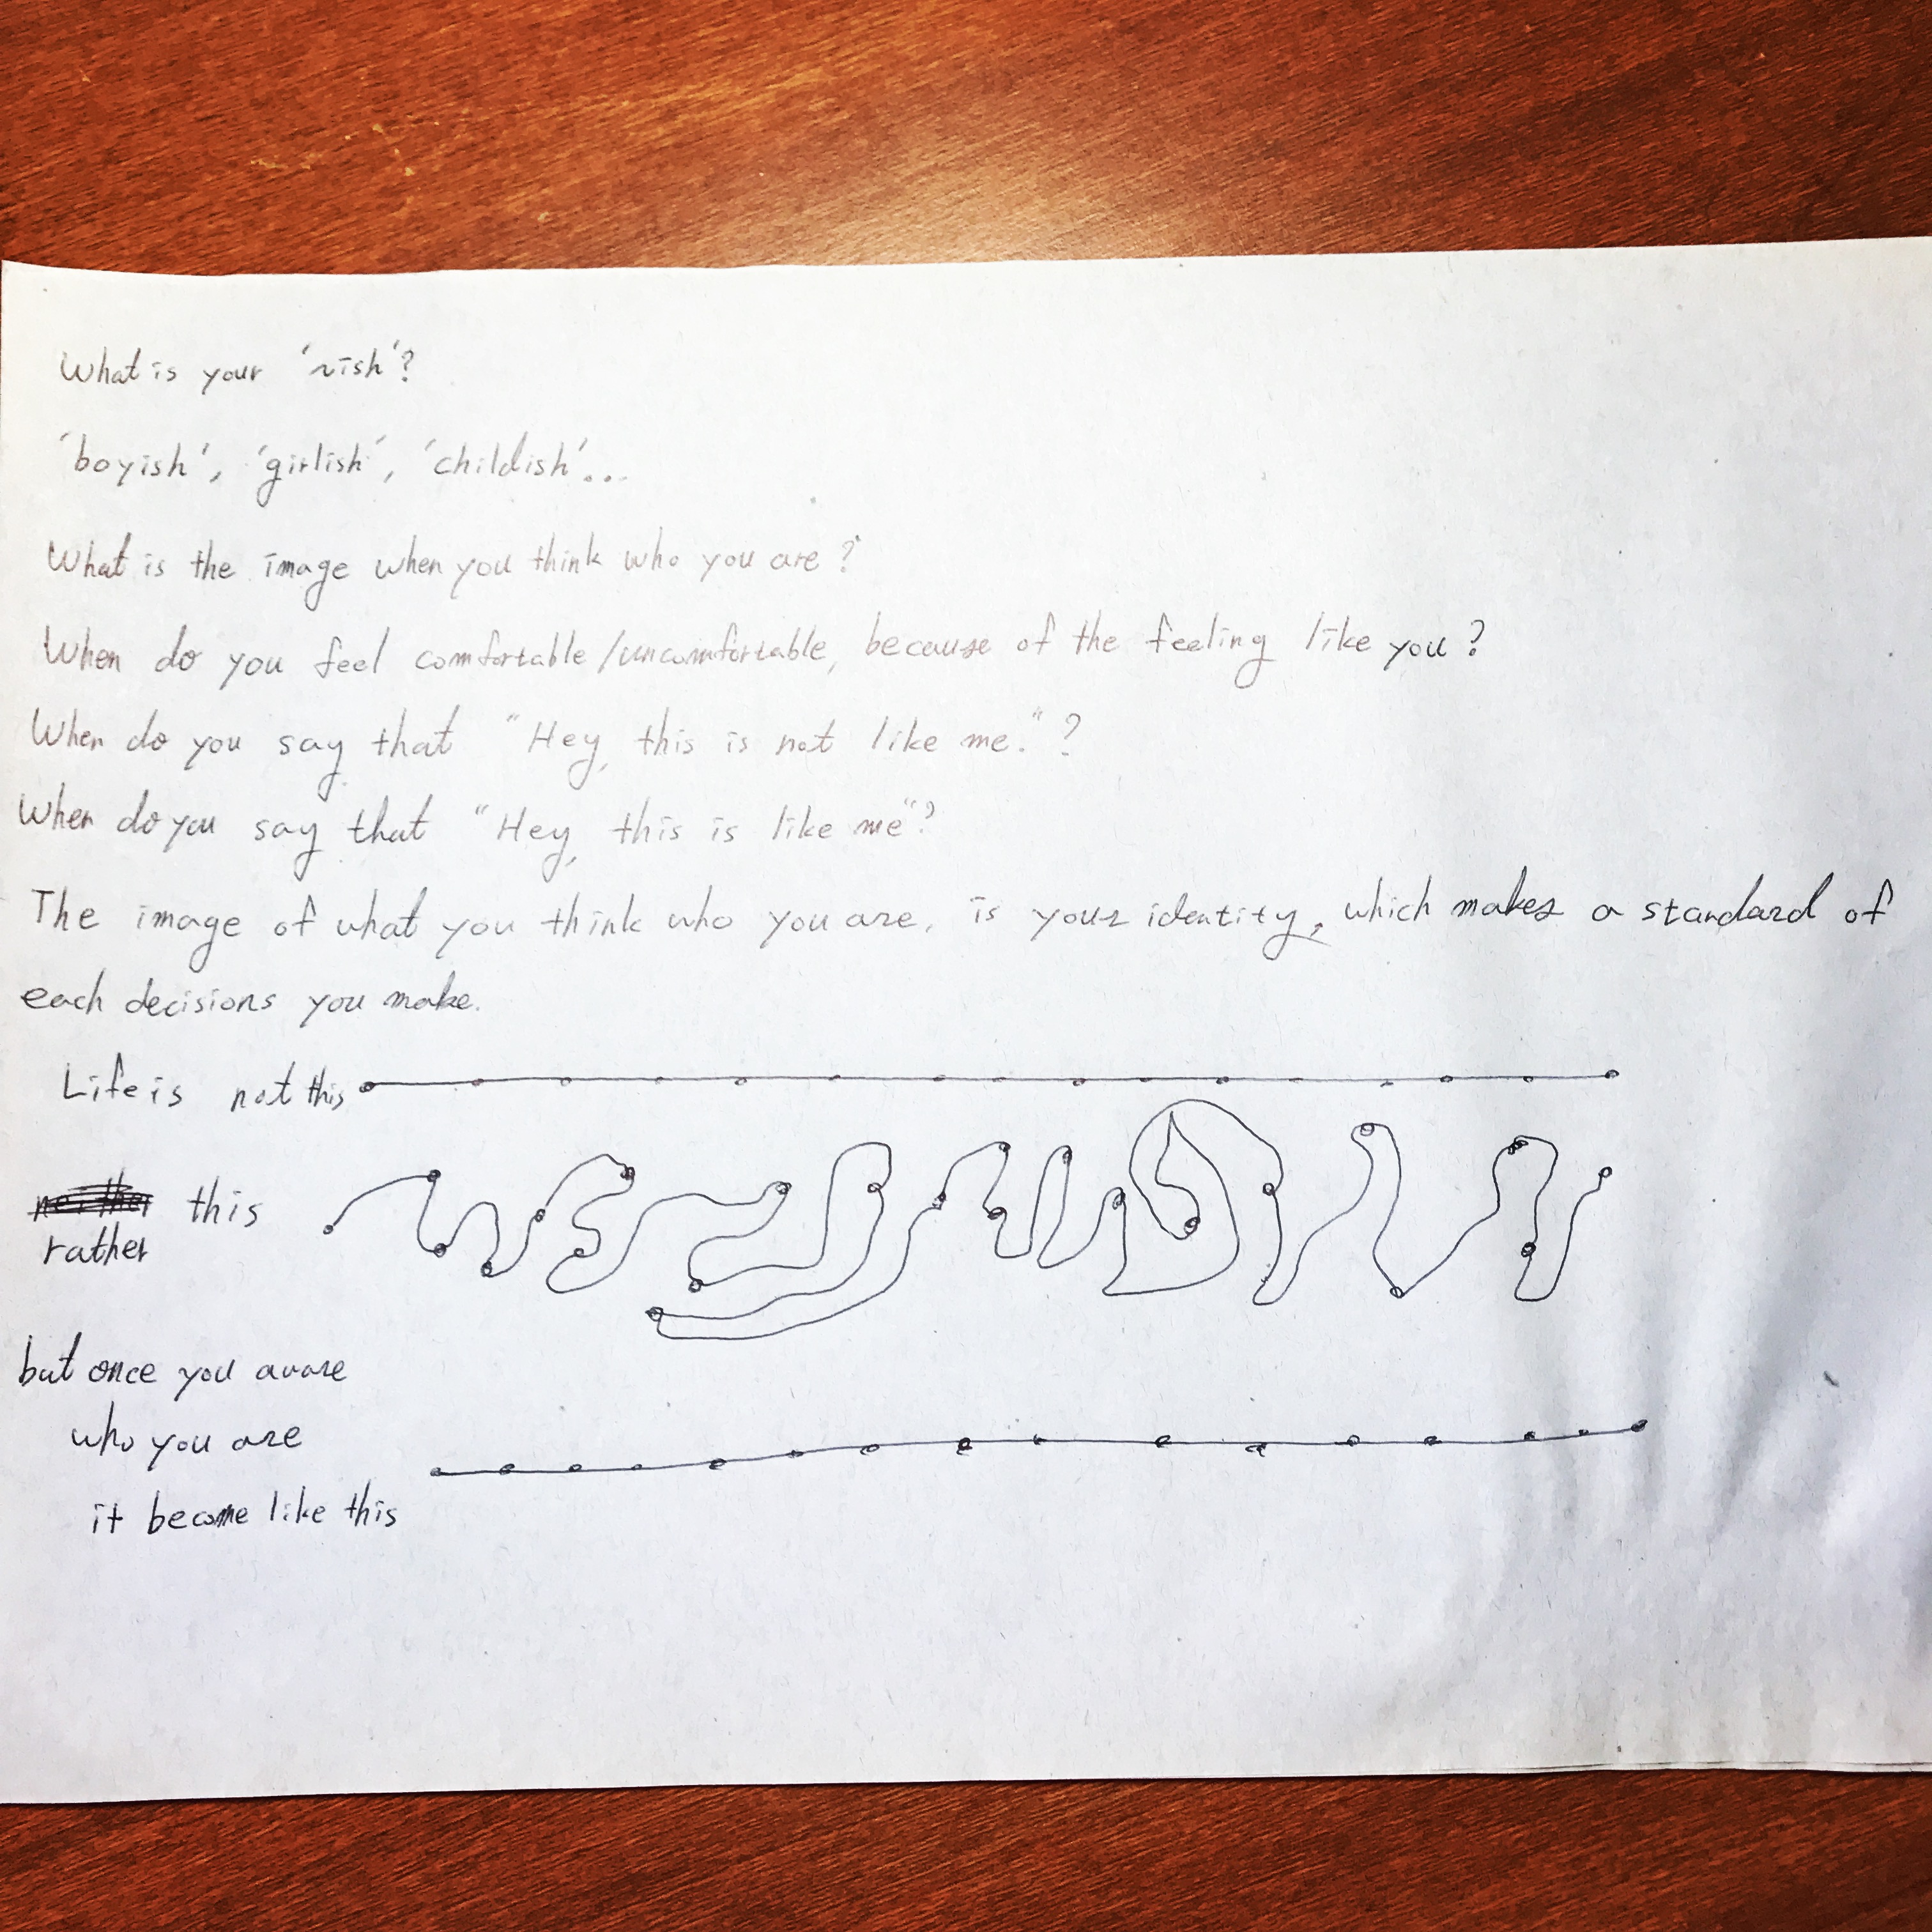 What is your '~ish'?
'boyish', 'girlish', 'childish'...
What is the image when you think who you are?
When do you feel comfortable/uncomfortable, because of the feeling like you?
When do you say that "Hey, this is not like me."?
When do you say that "Hey, this is like me"?
The image of what you think who you are, is your identity, which makes a standard of
each decisions you make.
Life is not this
neither this
rather
but once you aware
who you are
it become like this